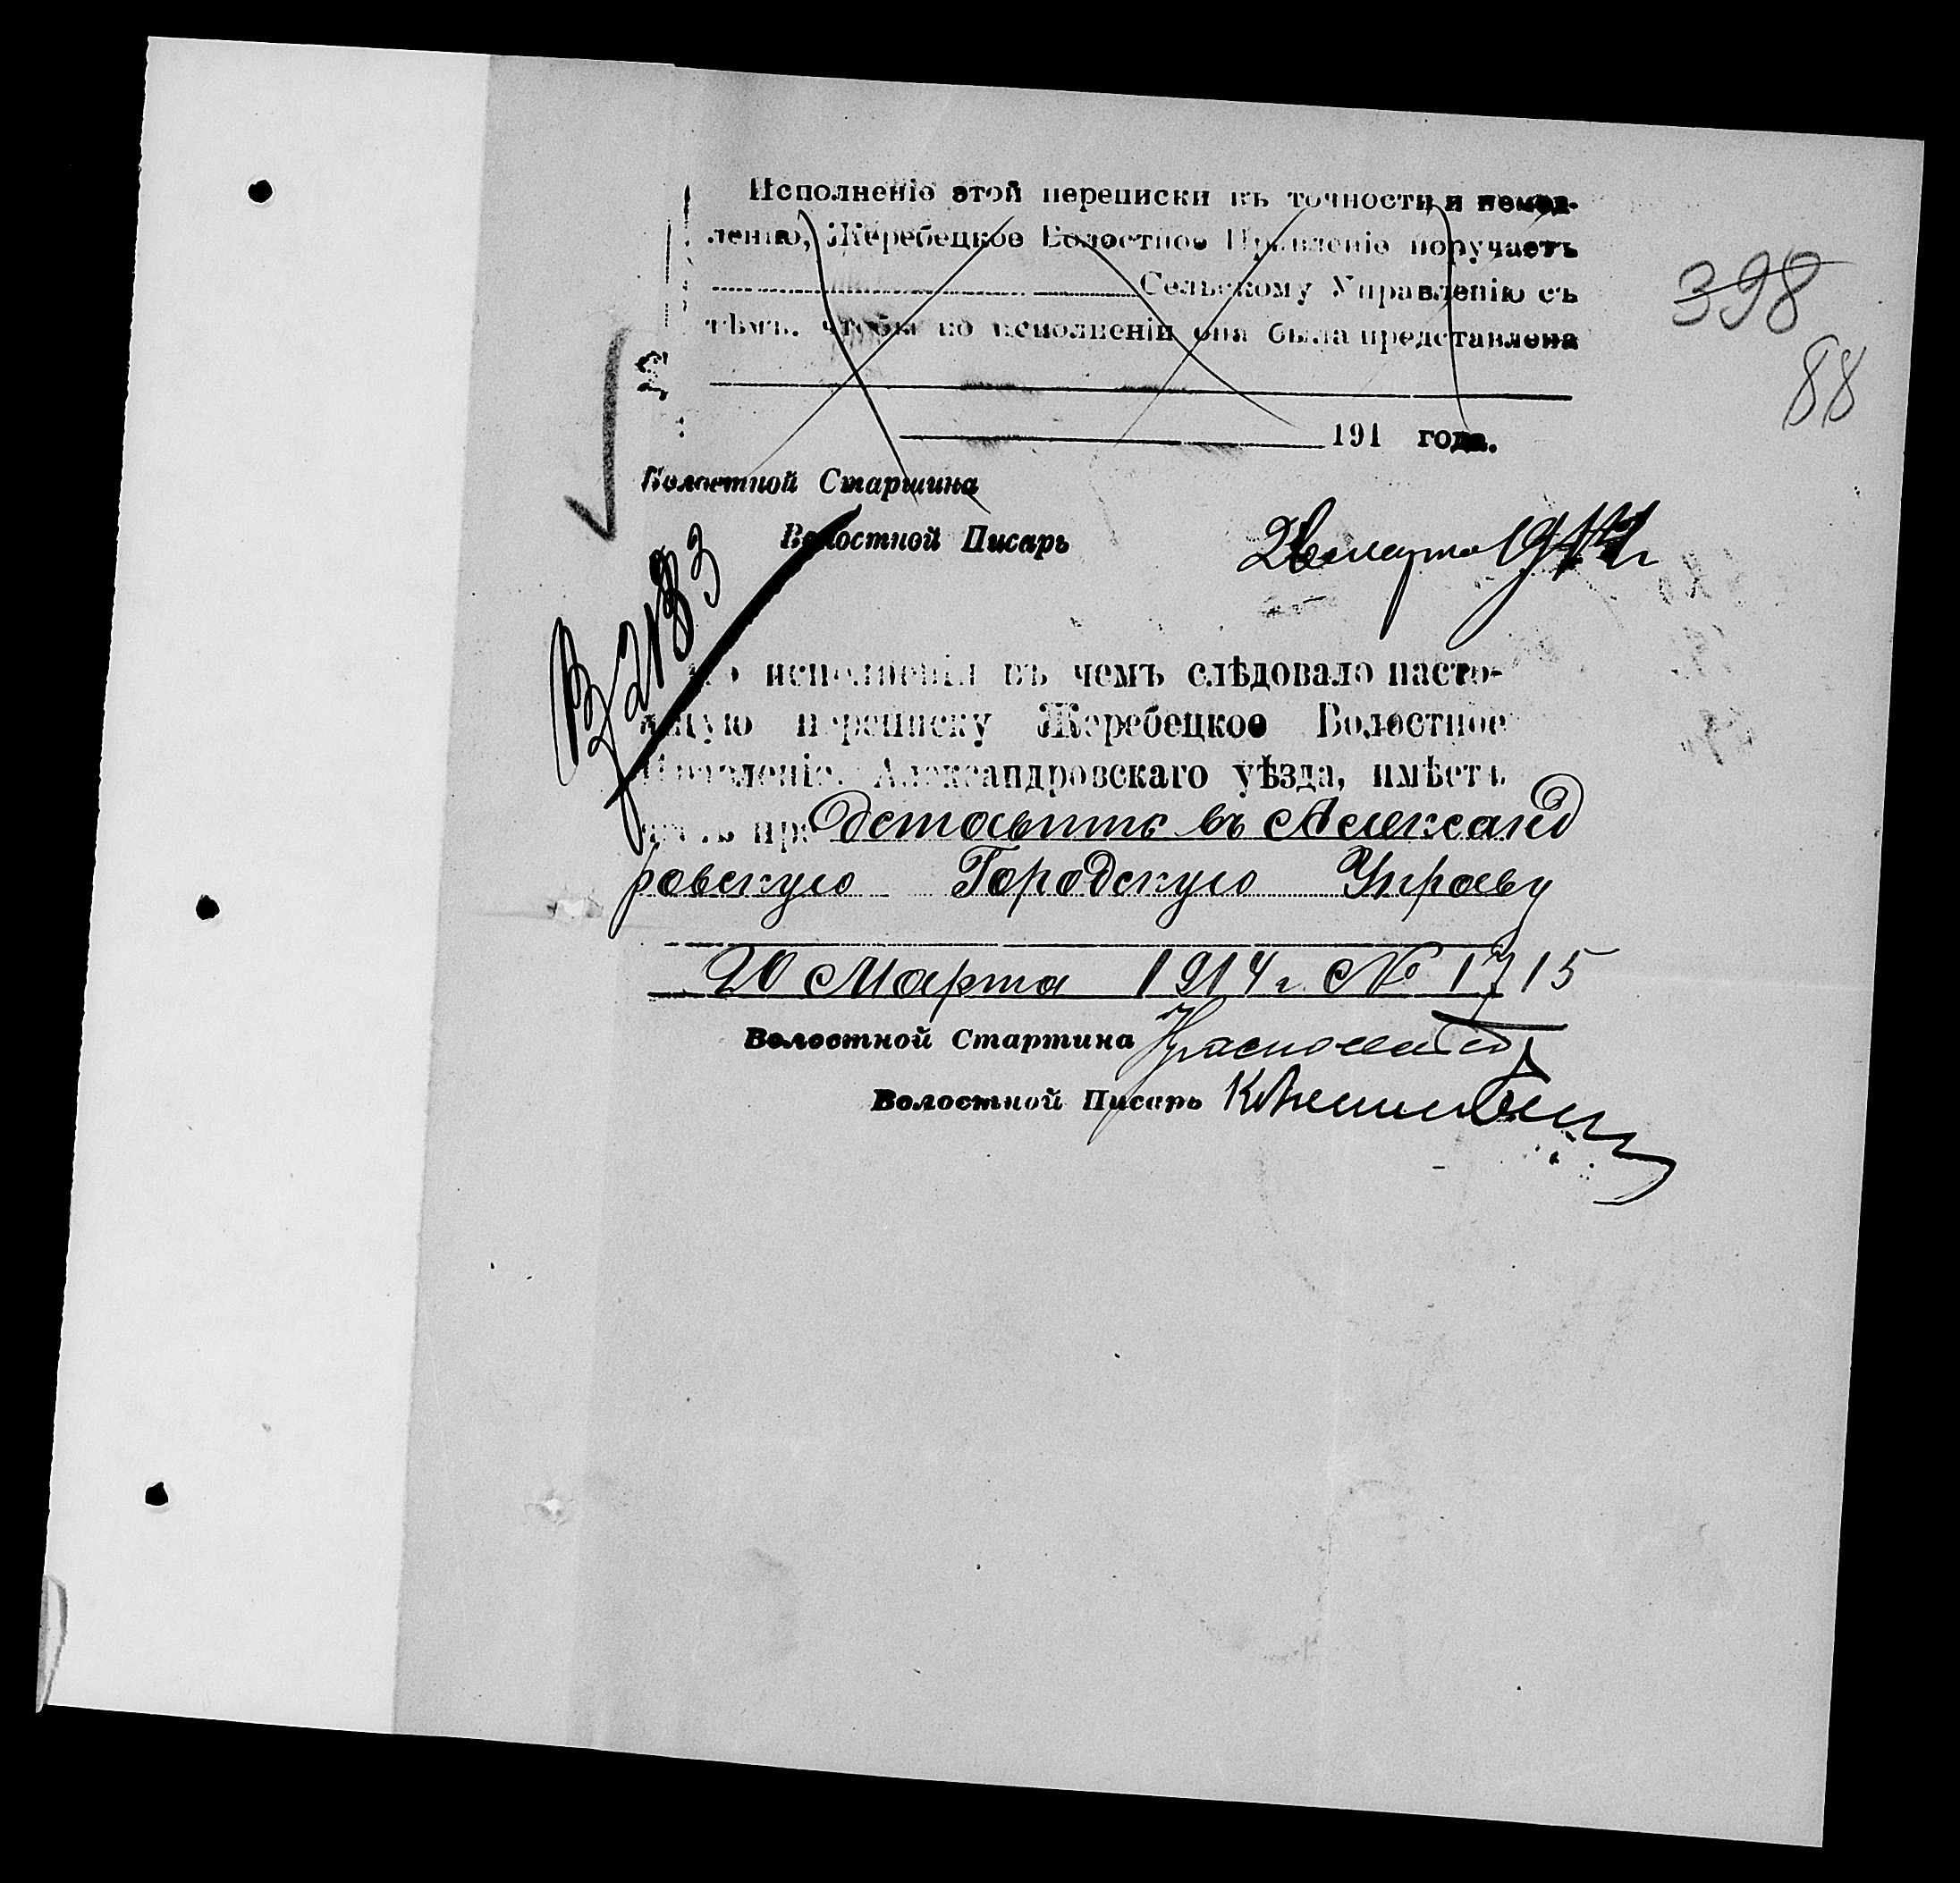 Исполненіе этой переписки въ точности и немед-
ленно, Жеребецкое Волостное Правленіе поручаетъ
Сельскому Управленію съ
тѣмъ, чтобы по исполненіи она была представлена
398
88
№
191 года.
Волостной Старшина
Волостной Писарь
марта 1914 г
2183
По исполненіи въ чемъ слѣдовало насто-
ящую переписку Жеребецкое Волостное
Правленіе, Александровскаго уѣзда, имѣетъ
честь представить въ Александ
ровскую Городскую Управу
20 Марта 1914 г. № 1715
Волостной Старшина
Волостной Писарь